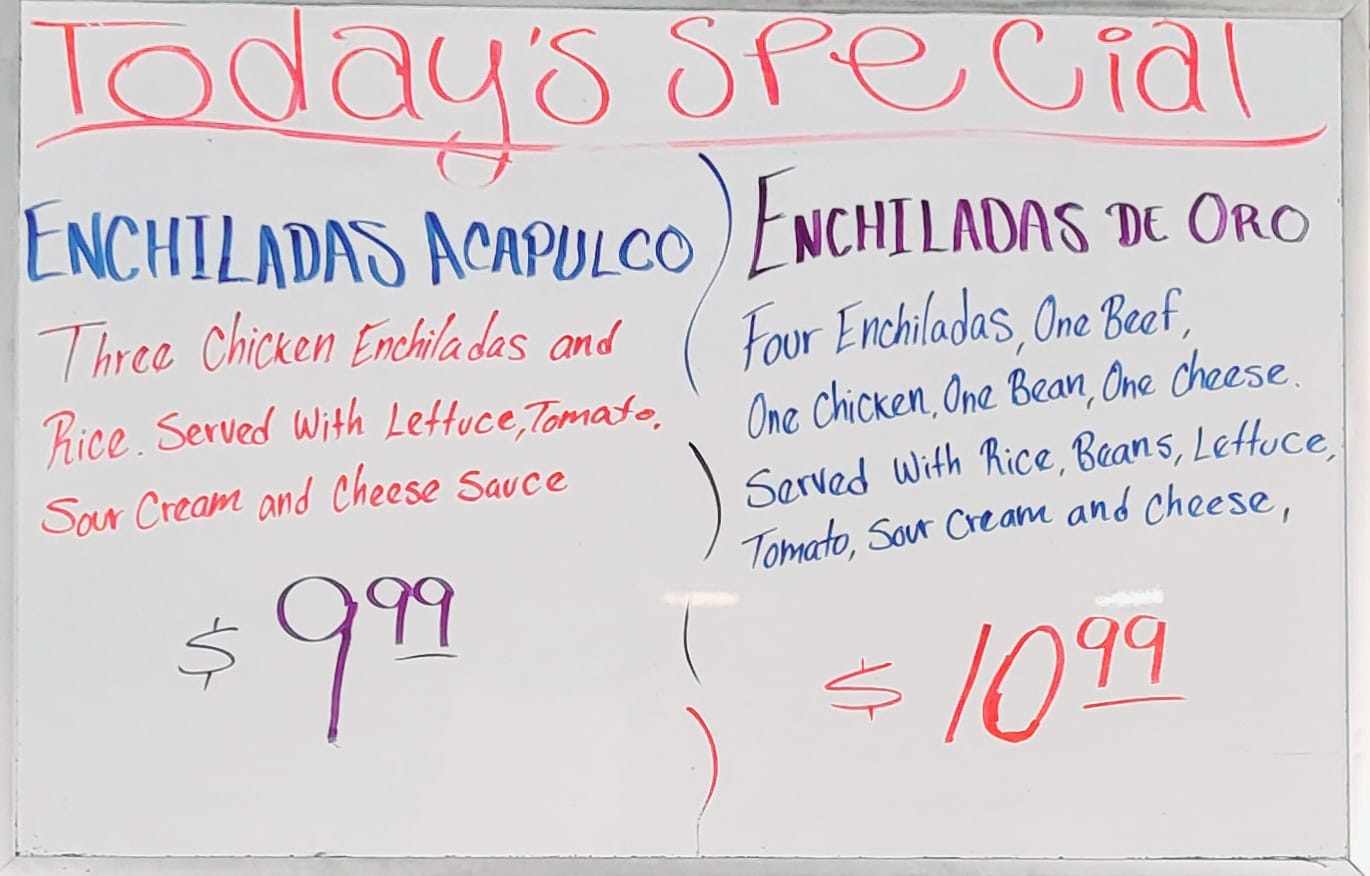 Today's Special
ENCHILADAS ACAPULCO
Three Chicken Enchiladas and
Rice. Served With Lettuce, Tomato,
Sour Cream and Cheese Sauce
$ 9 99
ENCHILADAS DE ORO
Four Enchiladas, One Beef,
One Chicken, One Bean, One Cheese.
Served With Rice, Beans, Lettuce,
Tomato, Sour Cream and Cheese,
$ 10 99